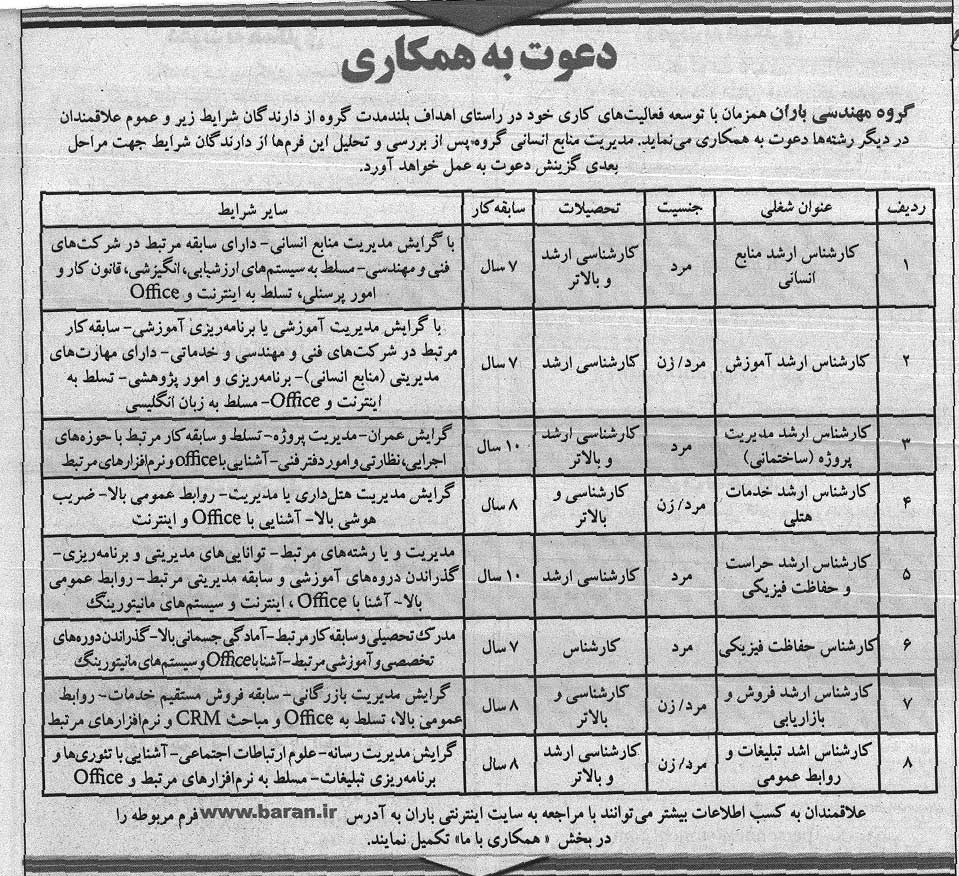 دعوت به همکاری
گروه مهندسی باران همزمان با توسعه فعالیت‌های کاری خود در راستای اهداف بلندمدت گروه از دارندگان شرایط زیر و عموم علاقمندان
در دیگر رشته‌ها دعوت به همکاری می‌نماید. مدیریت منابع انسانی گروه، پس از بررسی و تحلیل این فرم‌ها از دارندگان شرایط جهت مراحل
بعدی گزینش دعوت به عمل خواهد آورد.
ردیف عنوان شغلی جنسیت تحصیلات سابقه کار سایر شرایط
۱ کارشناس ارشد منابع انسانی مرد کارشناسی ارشد و بالاتر ۷ سال با گرایش مدیریت منابع انسانی- دارای سابقه مرتبط در شرکت‌های
فنی و مهندسی- مسلط به سیستم‌های ارزشیابی، انگیزشی، قانون کار و
امور پرسنلی، تسلط به اینترنت و Office
۲ کارشناس ارشد آموزش مرد/ زن کارشناسی ارشد ۷ سال با گرایش مدیریت آموزشی یا برنامه‌ریزی آموزشی- سابقه کار
مرتبط در شرکت‌های فنی و مهندسی و خدماتی- دارای مهارت‌های
مدیریتی (منابع انسانی)- برنامه‌ریزی و امور پژوهشی- تسلط به
اینترنت و Office- مسلط به زبان انگلیسی
۳ کارشناس ارشد مدیریت پروژه (ساختمانی) مرد کارشناسی ارشد و بالاتر ۱۰ سال گرایش عمران- مدیریت پروژه- تسلط و سابقه کار مرتبط با حوزه‌های
اجرایی، نظارتی و امور دفتر فنی- آشنایی با office و نرم‌افزارهای مرتبط
۴ کارشناس ارشد خدمات هتلی مرد/ زن کارشناسی و بالاتر ۸ سال گرایش مدیریت هتل‌داری یا مدیریت- روابط عمومی بالا- ضریب
هوشی بالا- آشنایی با Office و اینترنت
۵ کارشناس ارشد حراست و حفاظت فیزیکی مرد کارشناسی ارشد ۱۰ سال مدیریت و یا رشته‌های مرتبط- توانایی‌های مدیریتی و برنامه‌ریزی-
گذراندن دروه‌های آموزشی و سابقه مدیریتی مرتبط- روابط عمومی
بالا- آشنا با Office ، اینترنت و سیستم‌های مانیتورینگ
۶ کارشناس حفاظت فیزیکی مرد کارشناس ۷ سال مدرک تحصیلی و سابقه کار مرتبط- آمادگی جسمانی بالا- گذراندن دوره‌های
تخصصی و آموزشی مرتبط- آشنا با Office و سیستم‌های مانیتورینگ
۷ کارشناس ارشد فروش و بازاریابی مرد/ زن کارشناسی و بالاتر ۸ سال گرایش مدیریت بازرگانی- سابقه فروش مستقیم خدمات- روابط
عمومی بالا، تسلط به Office و مباحث CRM و نرم‌افزارهای مرتبط
۸ کارشناس اشد تبلیغات و روابط عمومی مرد/ زن کارشناسی ارشد و بالاتر ۸ سال گرایش مدیریت رسانه- علوم ارتباطات اجتماعی- آشنایی با تئوری‌ها و
برنامه‌ریزی تبلیغات- مسلط به نرم‌افزارهای مرتبط و Office
علاقمندان به کسب اطلاعات بیشتر می‌توانند با مراجعه به سایت اینترنتی باران به آدرس www.baran.ir فرم مربوطه را
در بخش « همکاری با ما» تکمیل نمایند.